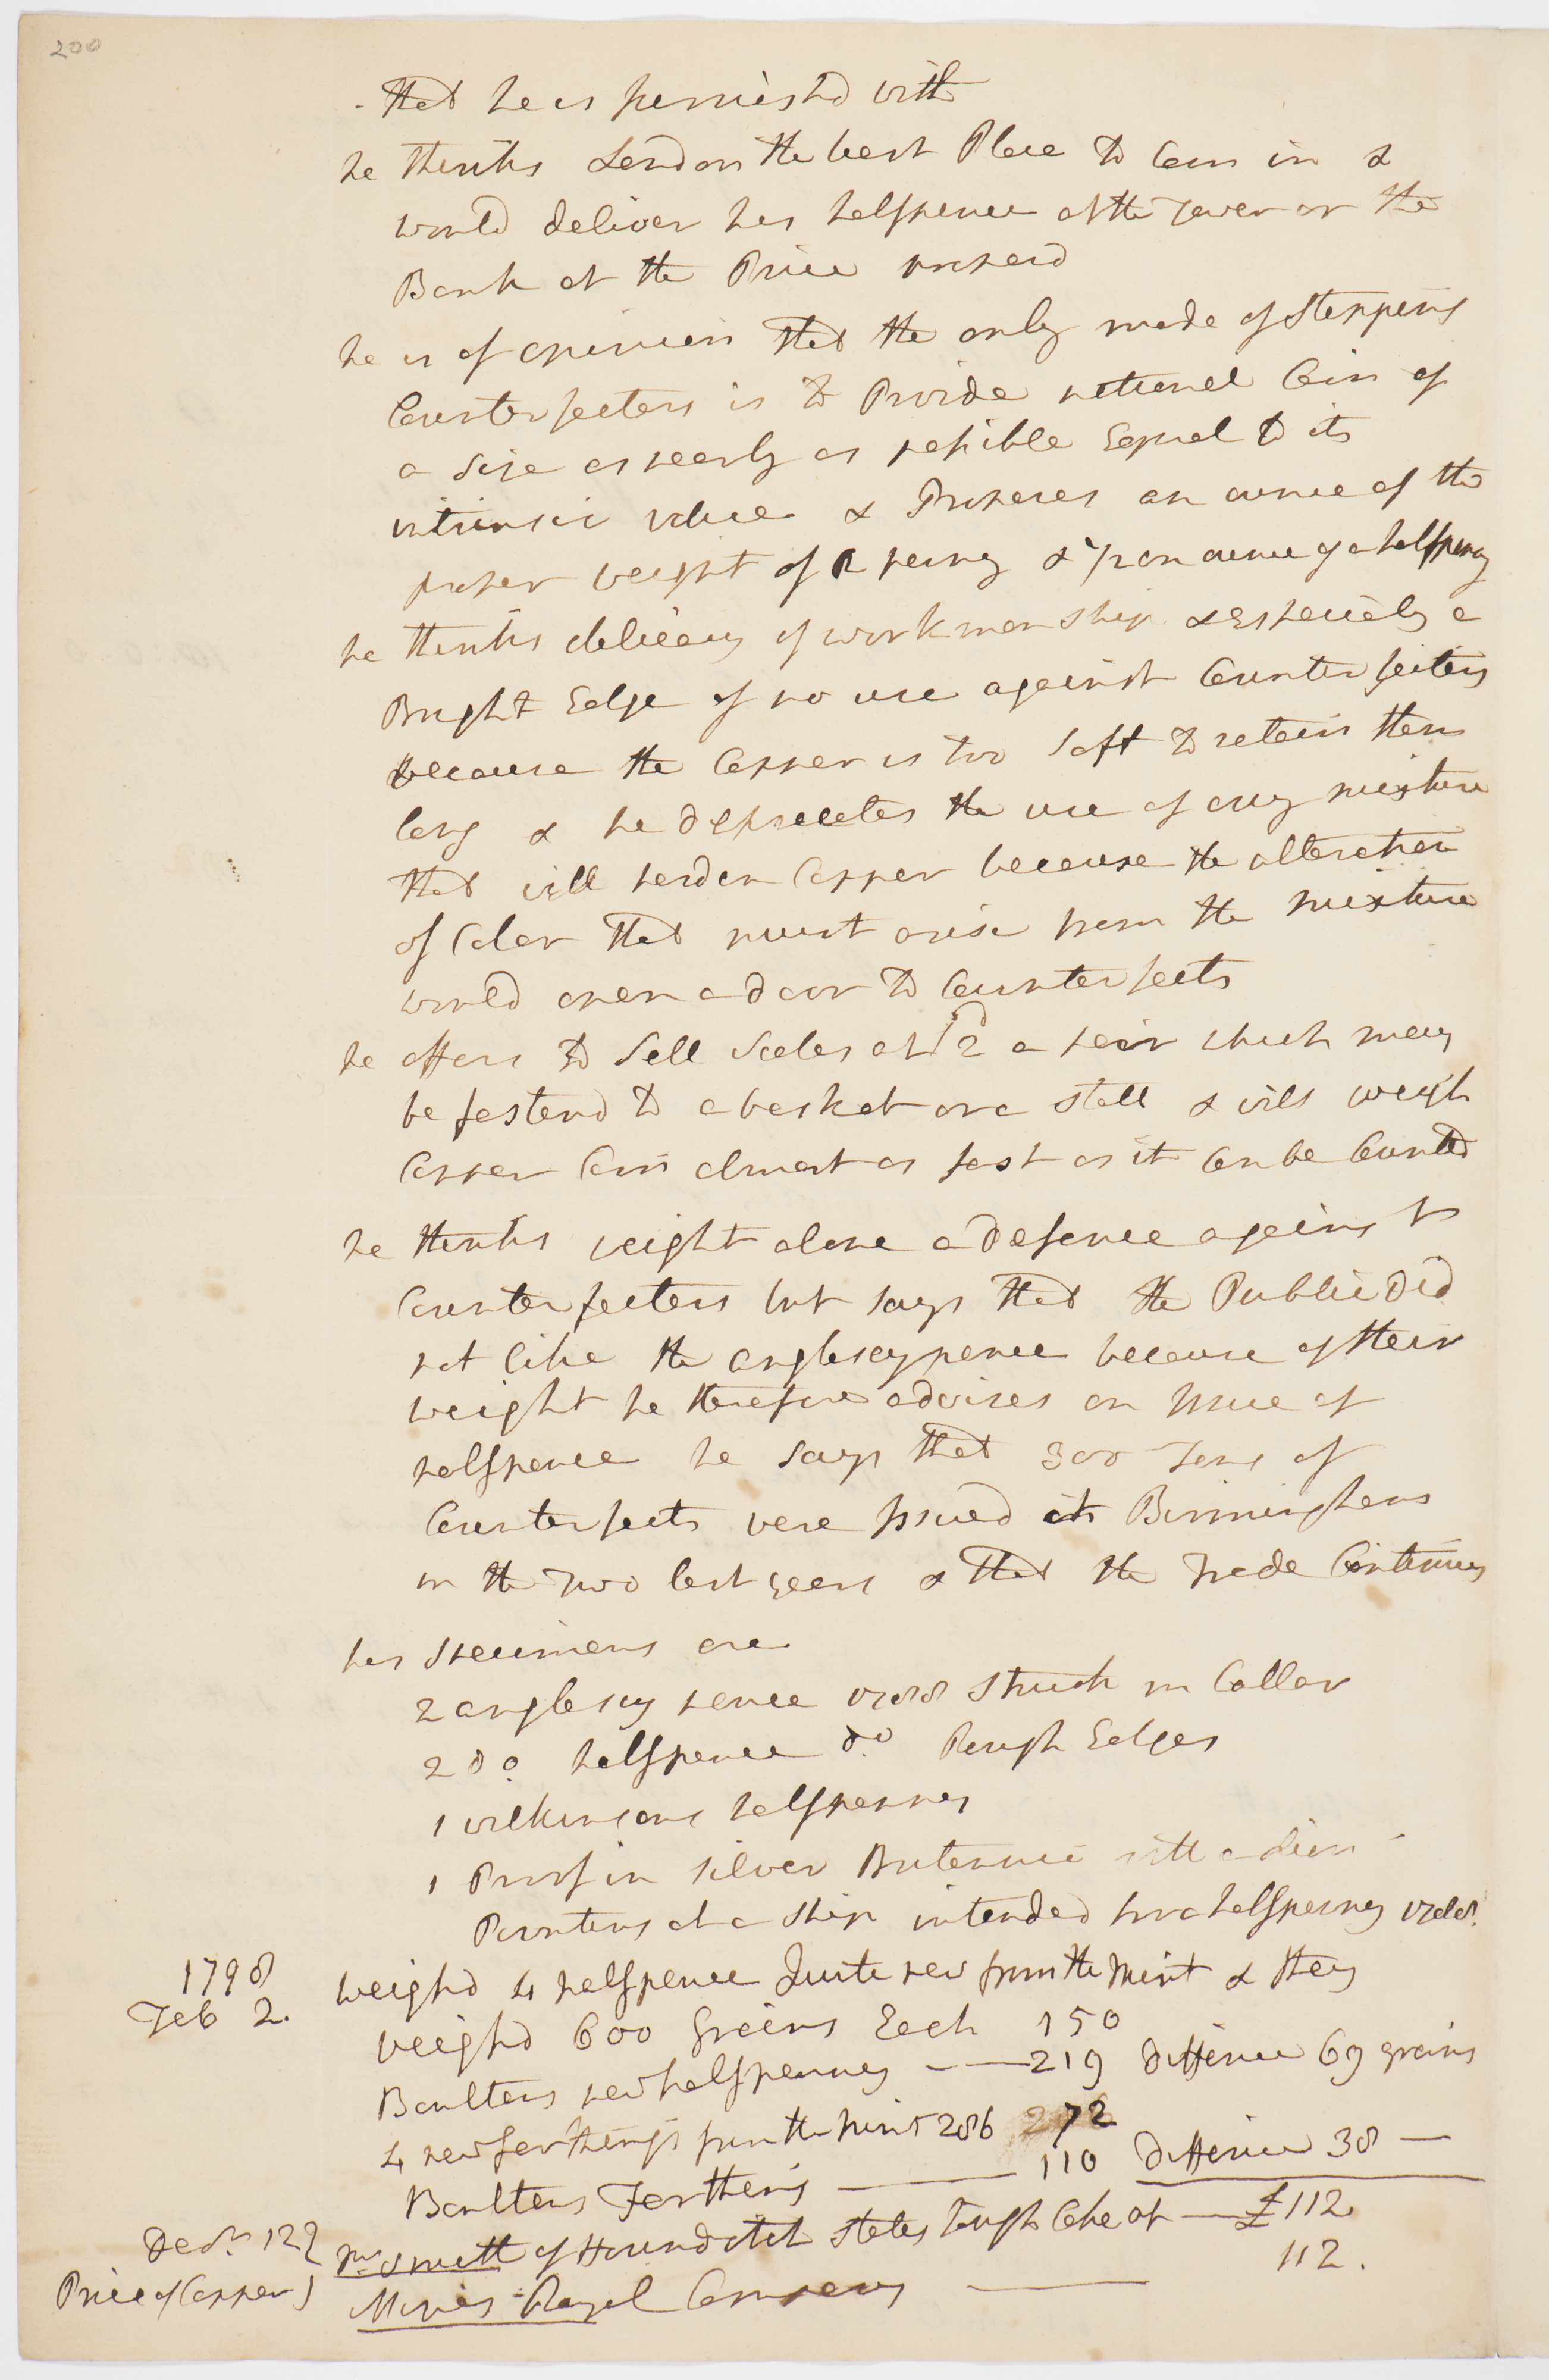 200
that he is furnishd with
he thinks London the best Place to Coin in &
would deliver his halfpence at the Tower or the
Bank at the Price proposd
he is of opinion that the only mode of stopping
Counterfeiters is to Provide national Coin of
a size as nearly as possible Equal to its
intrinsic value & Proposes an ounce of the
proper weight of a penny & ½ an ounce of a halfpenny
he thinks delicacy of workmanship & especialy a
Bright Edge of no use against Counterfeiters
because the Copper is too soft to retain them
long & he deprecates the use of any mixture
that will harden Copper because the alteration
of Color that must arise from the mixture
would open a door to Counterfeits
he offers to Sell Scales at 2 a pair which may
be fastend to a basket or a stall & will weigh
Copper Coin almost as fast as it Can be Counted
he thinks weight alone a defence against
Counterfeiters but says that the Public did
not like the anglesey pence because of their
weight he therefore advises an Issue of
halfpence he says that 300 Tons of
Counterfeits were Issued at Birmingham
in the Two last years & that the Trade Continues
his specimens are
2 anglesey pence 1788 struck in Collar
2 do halfpence do Rough Edges
1 wilkinsons halfpenny
1 Proof in silver Britannia with a lion
Pointing at a ship intended for a halfpenny 1788.
1798
Feb 2.
weighd 4 halfpence Quite new from the Mint & they
weighd 600 grains Each 150
Boultons new halfpenny 219 difference 69 grains
4 new farthings from the mint 286 72
Boultons Farthing 110 difference 38
Price of Copper
Mr Smith of Houndsditch states tough Cake at £112
Mines Royal Company 112.